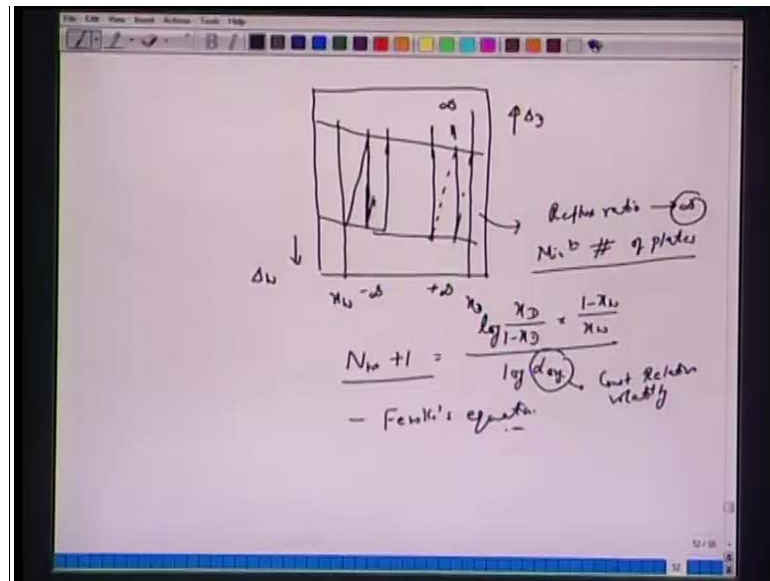 File Edit View Insert Actions Tools Help
∞
↑ ΔD
Reflux ratio → ∞
Min^b # of plates
Δw ↓
xw -∞ +∞ xD
Nm + 1 = log xD/1-xD × 1-xw/xw
log αavg → Const Relative
volatility
- Fenske's equation
52 / 55
52